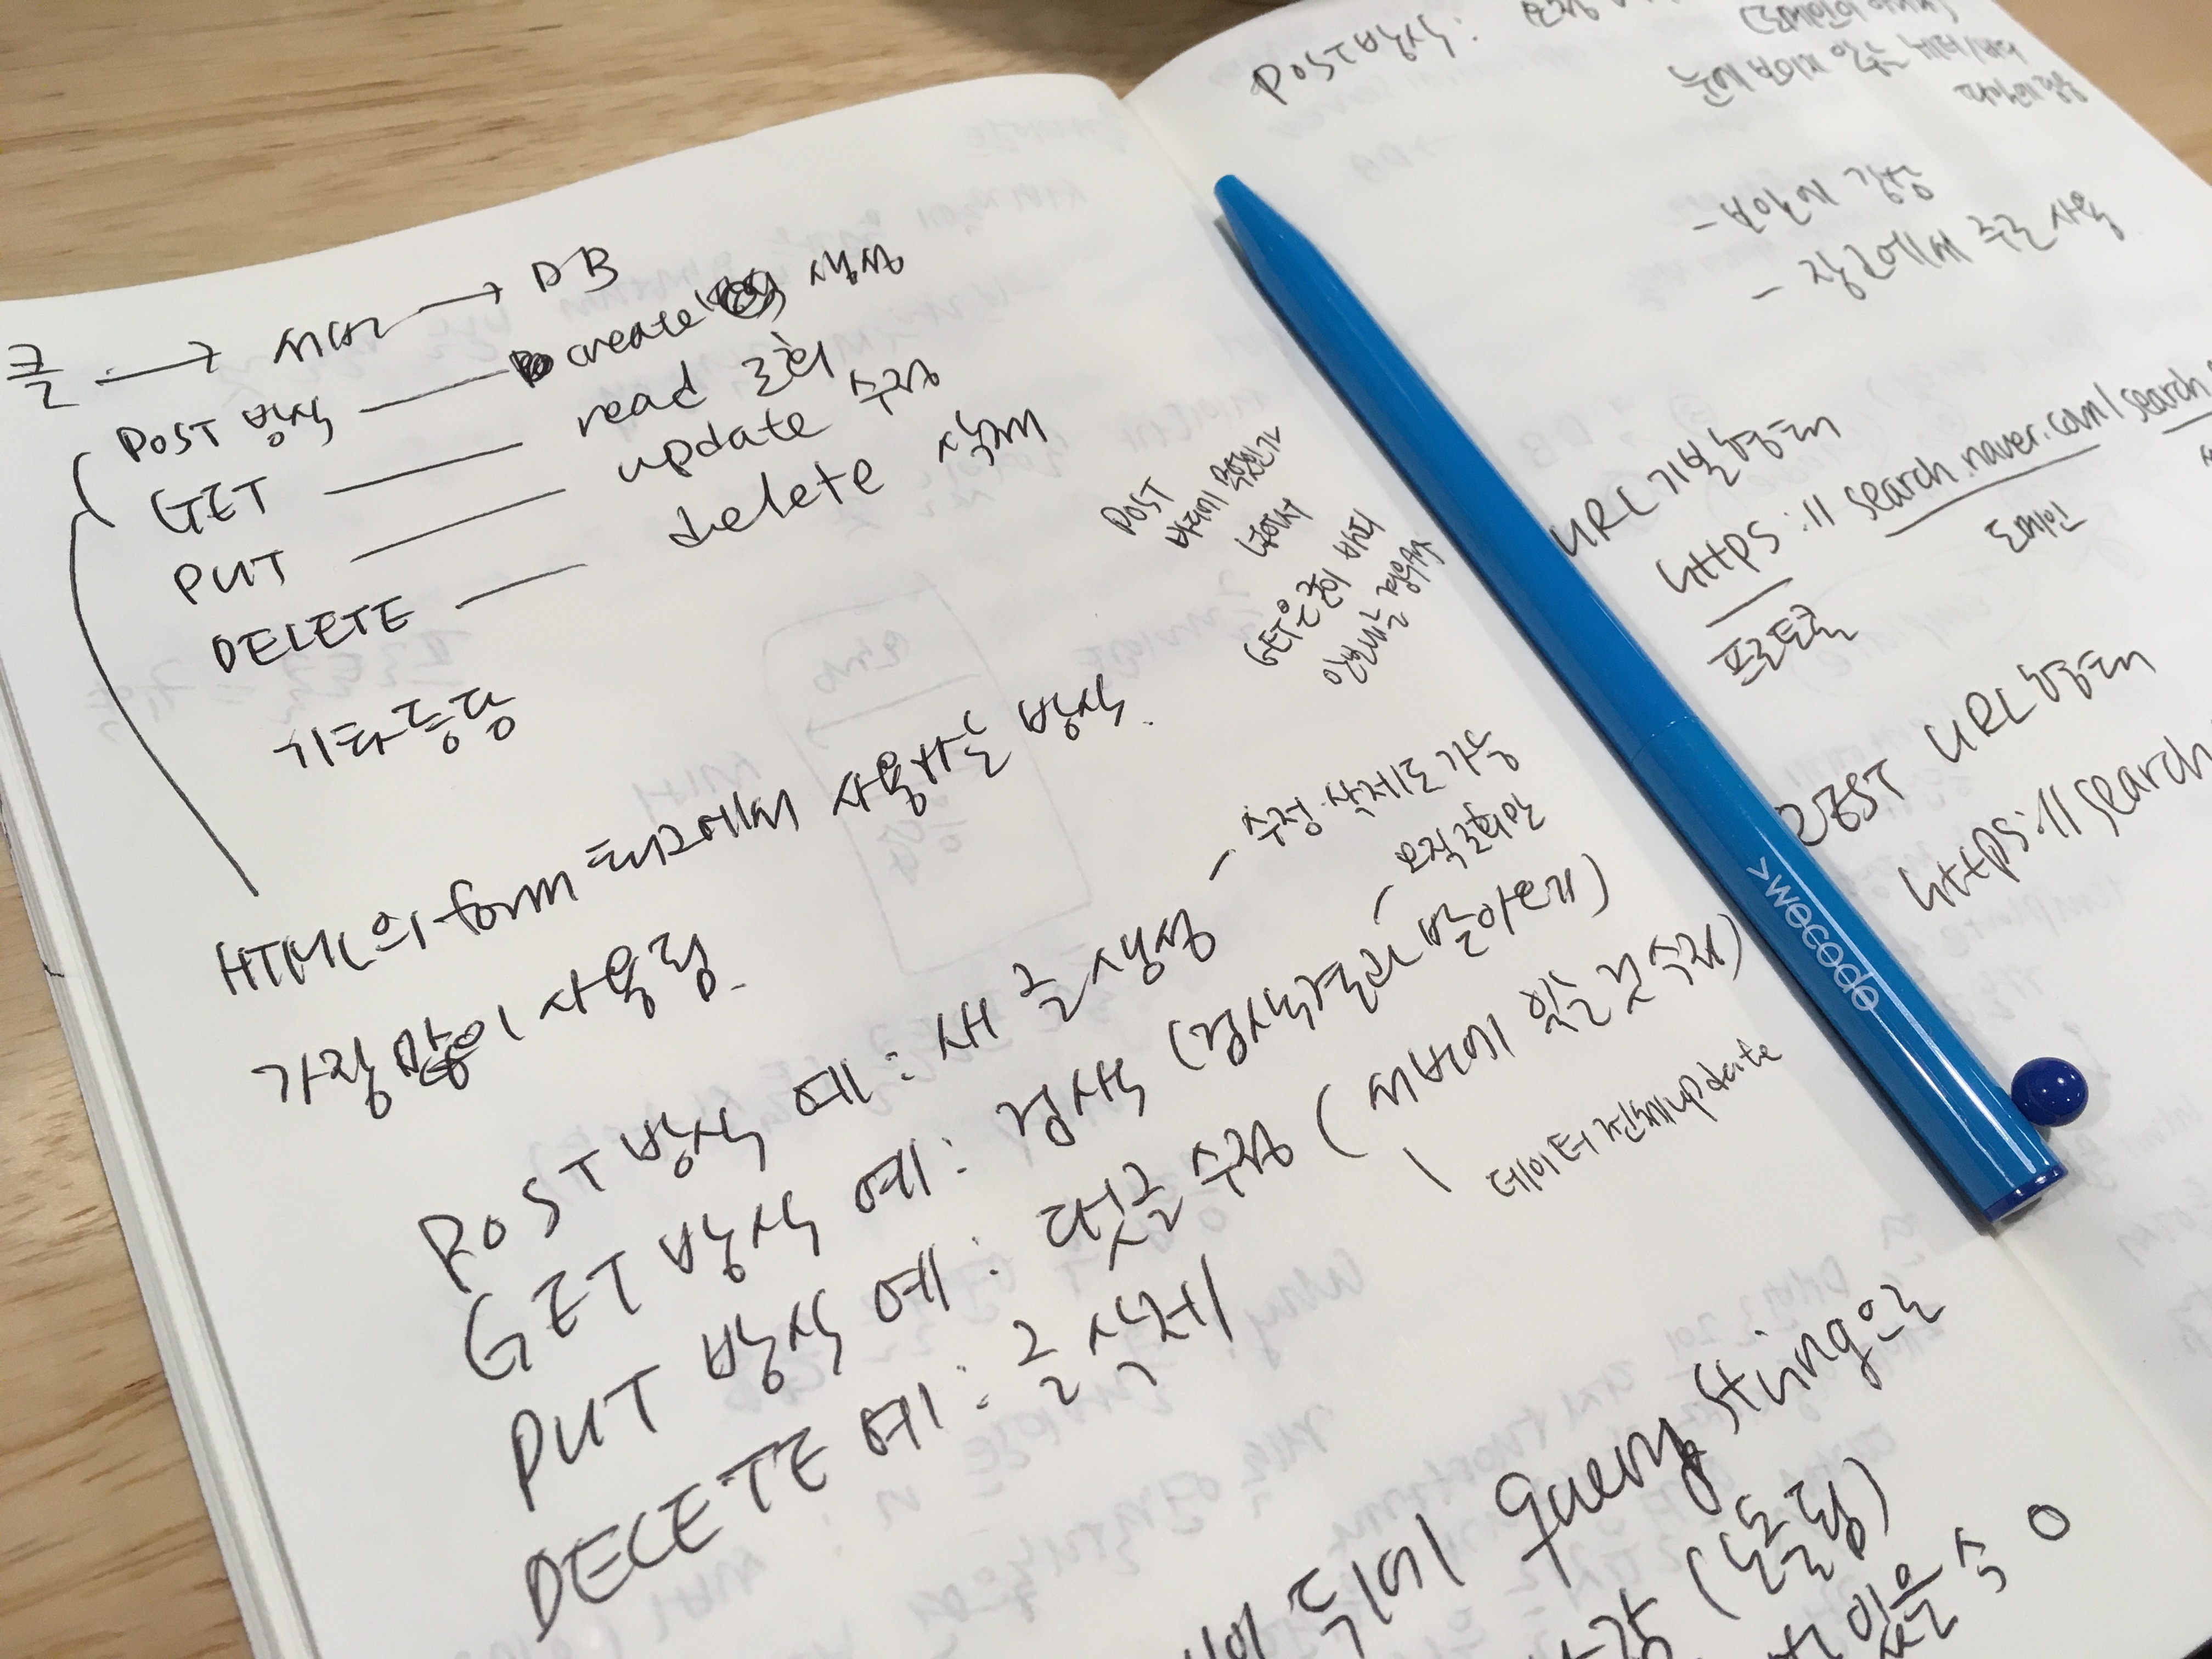 클 → 서버 → DB
POST 방식 — create 생성
GET — read 조회
PUT — update 수정
DELETE — delete 삭제
기타등등
HTML의 form 태그에서 사용하는 방식.
가장 많이 사용됨.
POST
바디에
넣어서
GET은 굳이 바디
안보내는 경우
- 수정·삭제도 가능
POST 방식 예: 새 글 생성
오직 조회만
GET 방식 예: 검색 (검색결과 받아오기)
PUT 방식 예: 댓글 수정 (서버에 있는 것 수정)
데이터 전체 update
DELETE 예: 글 삭제
뒤에 query string으로
(노출됨)
있을 수 O
POST 방식:
눈에 보이지 않는 헤더/바디
- 보안에 강함
- 장고에서 주로 사용
URL 기본형태
https://search.naver.com/search
도메인
프로토콜
URL 형태
https://search
>wecode